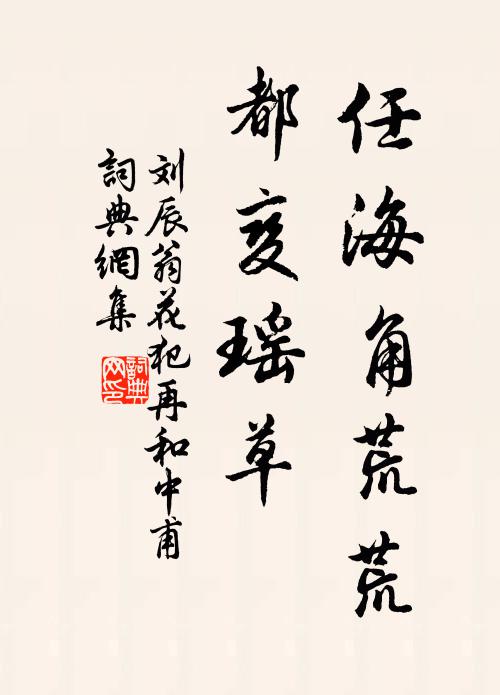 任海角荒荒
都变瑶草
刘辰翁花犯再和中甫
詞典網集
詞典
网印